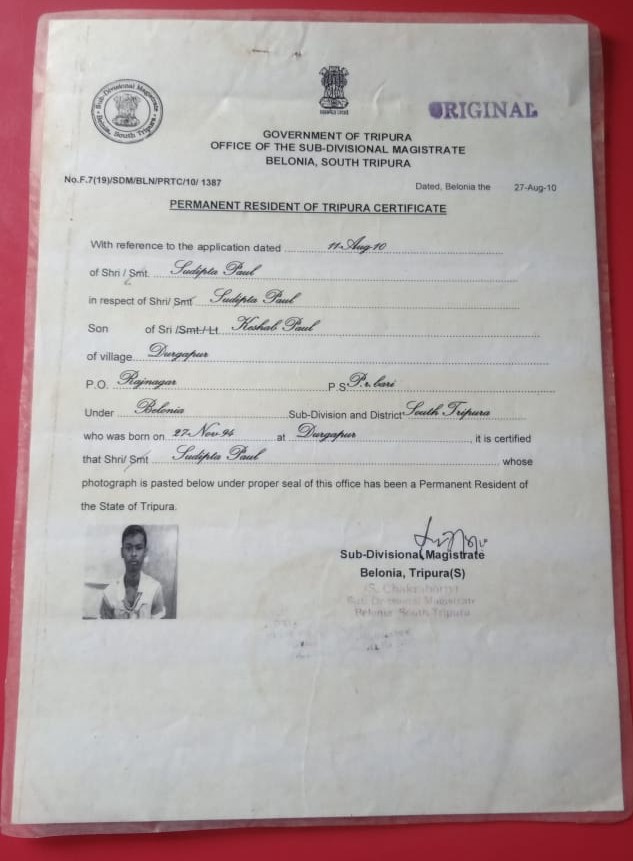 Sub-Divisional Magistrate
Belonia, South Tripura
ORIGINAL
GOVERNMENT OF TRIPURA
OFFICE OF THE SUB-DIVISIONAL MAGISTRATE
BELONIA, SOUTH TRIPURA
No.F.7(19)/SDM/BLN/PRTC/10/ 1387
Dated, Belonia the 27-Aug-10
PERMANENT RESIDENT OF TRIPURA CERTIFICATE
With reference to the application dated 11-Aug-10
of Shri / Smt. Sudipta Paul
in respect of Shri/ Smt Sudipta Paul
Son of Sri /Smt./ Lt. Keshab Paul
of village Durgapur
P.O. Rajnagar P.S P.r.bari
Under Belonia Sub-Division and District South Tripura
who was born on 27-Nov-94 at Durgapur, it is certified
that Shri/ Smt Sudipta Paul whose
photograph is pasted below under proper seal of this office has been a Permanent Resident of
the State of Tripura.
Sub-Divisional Magistrate
Belonia, Tripura(S)
(S. Chakraborty)
Sub Divisional Magistrate
Belonia South Tripura